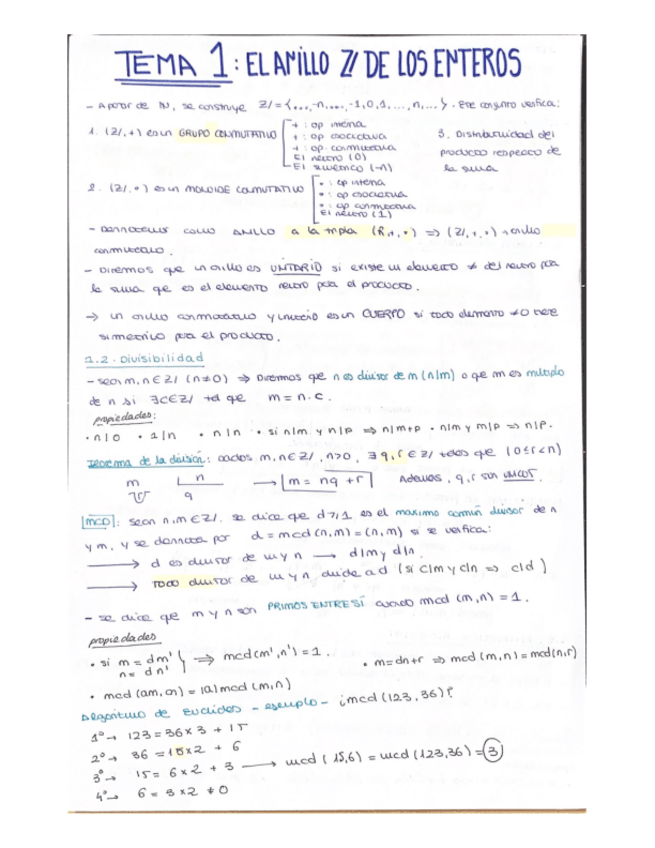 TEMA 1: EL ANILLO ℤ DE LOS ENTEROS
- A partir de ℕ, se construye ℤ = {..., -n, ..., -1, 0, 1, ..., n, ...}. Este conjunto verifica:
1. (ℤ, +) es un GRUPO CONMUTATIVO
+ : op interna
+ : op asociativa
+ : op. conmutativa
El neutro (0)
El simétrico (-n)
3. Distributividad del
producto respecto de
la suma
2. (ℤ, •) es un MONOIDE CONMUTATIVO
• : op interna
• : op asociativa
• : op conmutativa
El neutro (1)
- Denotamos como ANILLO a la tripla (R, +, •) ⇒ (ℤ, +, •) anillo
conmutativo.
- Diremos que un anillo es UNITARIO si existe un elemento ≠ del neutro para
la suma que es el elemento neutro para el producto.
→ un anillo conmutativo y unitario es un CUERPO si todo elemento ≠0 tiene
simétrico para el producto.
1.2. Divisibilidad
- sean m, n ∈ ℤ (n≠0) ⇒ Diremos que n es divisor de m (n|m) o que m es múltiplo
de n si ∃c∈ℤ tal que m = n·c.
propiedades:
• n|0 • 1|n • n|n • si n|m y n|p ⇒ n|m+p • n|m y m|p ⇒ n|p.
Teorema de la división: dados m, n ∈ ℤ, n>0, ∃ q, r ∈ ℤ tales que (0≤r<n)
m n
r q
→ m = nq + r Además, q, r son únicos.
MCD: sean n, m ∈ ℤ. se dice que d≥1 es el máximo común divisor de n
y m, y se denota por d = mcd (n, m) = (n, m) si se verifica:
→ d es divisor de m y n → d|m y d|n.
→ TODO divisor de m y n divide a d (si c|m y c|n ⇒ c|d)
- se dice que m y n son PRIMOS ENTRE SÍ cuando mcd (m, n) = 1.
propiedades
• si m = dm' n = dn' } ⇒ mcd(m', n') = 1.
• m = dn+r ⇒ mcd (m, n) = mcd(n, r)
• mcd (am, an) = |a| mcd (m, n)
Algoritmo de Euclides - ejemplo - ¿mcd (123, 36)?
1º → 123 = 36 x 3 + 15
2º → 36 = 15 x 2 + 6
3º → 15 = 6 x 2 + 3 → mcd (15, 6) = mcd (123, 36) = 3
4º → 6 = 3 x 2 + 0